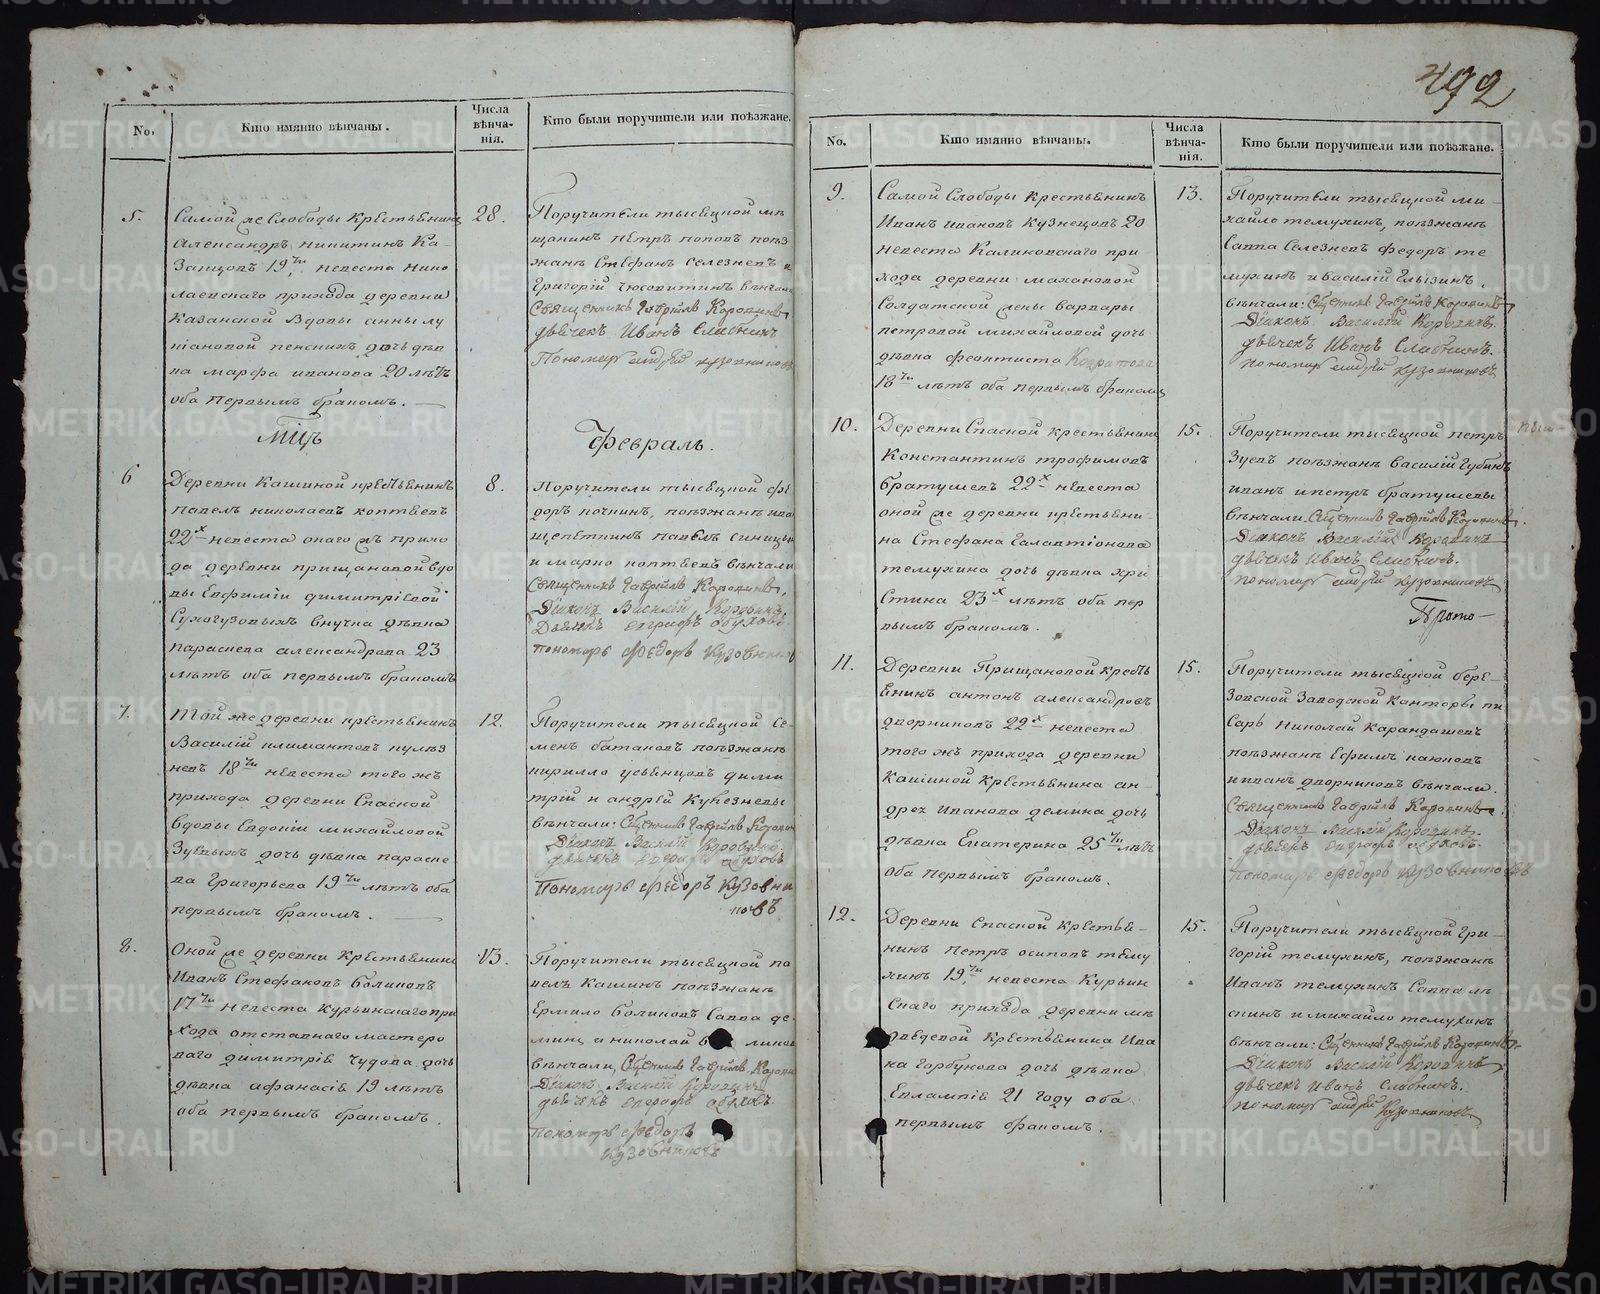 492
No.
Кто имянно вѣнчаны.
Числа
вѣнча-
нія.
Кто были поручители или поѣзжане.
5.
Самой же Слободы крестьянинъ
Александръ Никитинъ Ка-
занцовъ 19ти невеста Нико
лаевскаго прихода деревни
Казанской вдовы Анны лу
кіановой дочь дѣв
ка марфа иванова 20 лѣтъ
оба первымъ бракомъ.
28.
Поручители тысецкой мѣ
щанинъ петръ поповъ поѣз
жанѣ Стефанъ Селезневъ и
Григорій вѣнчали
Священникъ Гавріилъ Коровинъ
дьячекъ Иванъ Славнинъ
Пономарь андрей кузовниковъ
Мцъ
Февраль.
6
Деревни Кашиной крестьянинъ
павелъ николаевъ коптяевъ
22х невеста онаго жъ прихо
да деревни прищановой вдо
вы Евфиміи димитріевой
Сухогузовыхъ внучка дѣвка
параскева александрова 23
лѣтъ оба первымъ бракомъ
8.
Поручители тысецкой фе
доръ почкинъ, поѣзжанѣ ива
щепеткинъ павелъ синицы
и марко коптяевъ вѣнчали
Священникъ Гавріилъ Коровинъ,
Діаконъ Василій Коровинъ.
Дьячекъ евграфъ обуховъ
пономарь Федоръ Кузовников
7.
Той же деревни крестьянинъ
Василій климантовъ кулѣз
невъ 18ти невеста того жъ
прихода деревни Спаской
вдовы Евдокіи михайловой
Зуевыхъ дочь дѣвка параске
ва Григорьева 19ти лѣтъ оба
первымъ бракомъ.
12.
Поручители тысецкой Се
менъ батаковъ поѣзжанѣ
кирилло усьянцовъ дими
трій и андрей Кулезневы
вѣнчали: Священникъ Гавріилъ Коровин
Діаконъ Василій Коровинъ.
дьячекъ евграфъ обуховъ
Пономарь Федоръ Кузовни
ковъ
8.
Оной же деревни крестьянинъ
Иванъ Стефановъ боликовъ
17ти невеста Курьинскаго при
хода отставнаго мастеро
ваго димитрія Чудова дочь
дѣвка афанасія 19 лѣтъ
оба первымъ бракомъ.
13.
Поручители тысецкой па
велъ Кашинъ поѣзжанѣ
Ермило боликовъ Савва де-
минъ и николай б ликов
вѣнчали, Священникъ Гавріилъ Коровин
Діаконъ Василій Коровинъ
дьячекъ евграфъ обуховъ.
пономарь Федоръ
Кузовниковъ
No.
Кто имянно вѣнчаны.
Числа
вѣнча-
нія.
Кто были поручители или поѣзжане.
9.
Самой Слободы крестьянинъ
Иванъ ивановъ Кузнецовъ 20
невеста Калиновскаго при
хода деревни махановой
Солдатской жены варвары
петровой михайловой дочь
дѣвка феоктиста
18ти лѣтъ оба первымъ бракомъ
13.
Поручители тысецкой ми-
хайло темухинъ, поѣзжанѣ
Савва Селезневъ федоръ те
мухинъ и василій Глызинъ.
вѣнчали: Священникъ Гавріилъ Коровинъ
Діаконъ Василій Коровинъ.
дьячекъ Иванъ Славнинъ.
пономарь андрей кузовниковъ
10.
Деревни Спаской крестьянинъ
Константинъ трофимовъ
братушевъ 22х невеста
оной же деревни крестьяни-
на Стефана Галактіонова
темухина дочь дѣвка хри
стина 23х лѣтъ оба пер
вымъ бракомъ.
15.
Поручители тысецкой петръ
Зуевъ поѣзжанѣ василій Губинъ
иванъ и петръ братушевы
вѣнчали. Священникъ Гавріилъ Коровинъ.
Діаконъ Василій Коровинъ
дьячекъ Иванъ Славнинъ.
пономарь андрей кузовниковъ
Прото-
11.
Деревни Прищановой кресть
янинъ антонъ александровъ
дворниковъ 22х невеста
того жъ прихода деревни
Кашиной крестьянина ан-
дрея иванова демина дочь
дѣвка Екатерина 25ти лѣтъ
оба первымъ бракомъ.
15.
Поручители тысецкой бере-
зовской Заводской Канторы пи
сарь николай Карандашевъ
поѣзжанѣ Ефимъ каюковъ
и иванъ дворниковъ вѣнчали.
Священникъ Гавріилъ Коровинъ.
Діаконъ Василій Коровинъ.
дьячекъ евграфъ обуховъ.
пономарь Федоръ Кузовниковъ
12.
Деревни спаской крестья-
нинъ петръ осиповъ тему
хинъ 19ти невеста Курьин
скаго прихода деревни мѣ
дведевой Крестьянина Ива
на Горбунова дочь дѣвка
Евлампія 21 году оба
первымъ бракомъ.
15.
Поручители тысецкой гри-
горій темухинъ, поѣзжанѣ
Иванъ темухинъ Савва
и михайло темухинъ
вѣнчали: Священникъ Гавріилъ Коровинъ
Діаконъ Василій Коровинъ
дьячекъ Иванъ Славнинъ.
пономарь андрей Кузовниковъ
METRIKI.GASO-URAL.RU